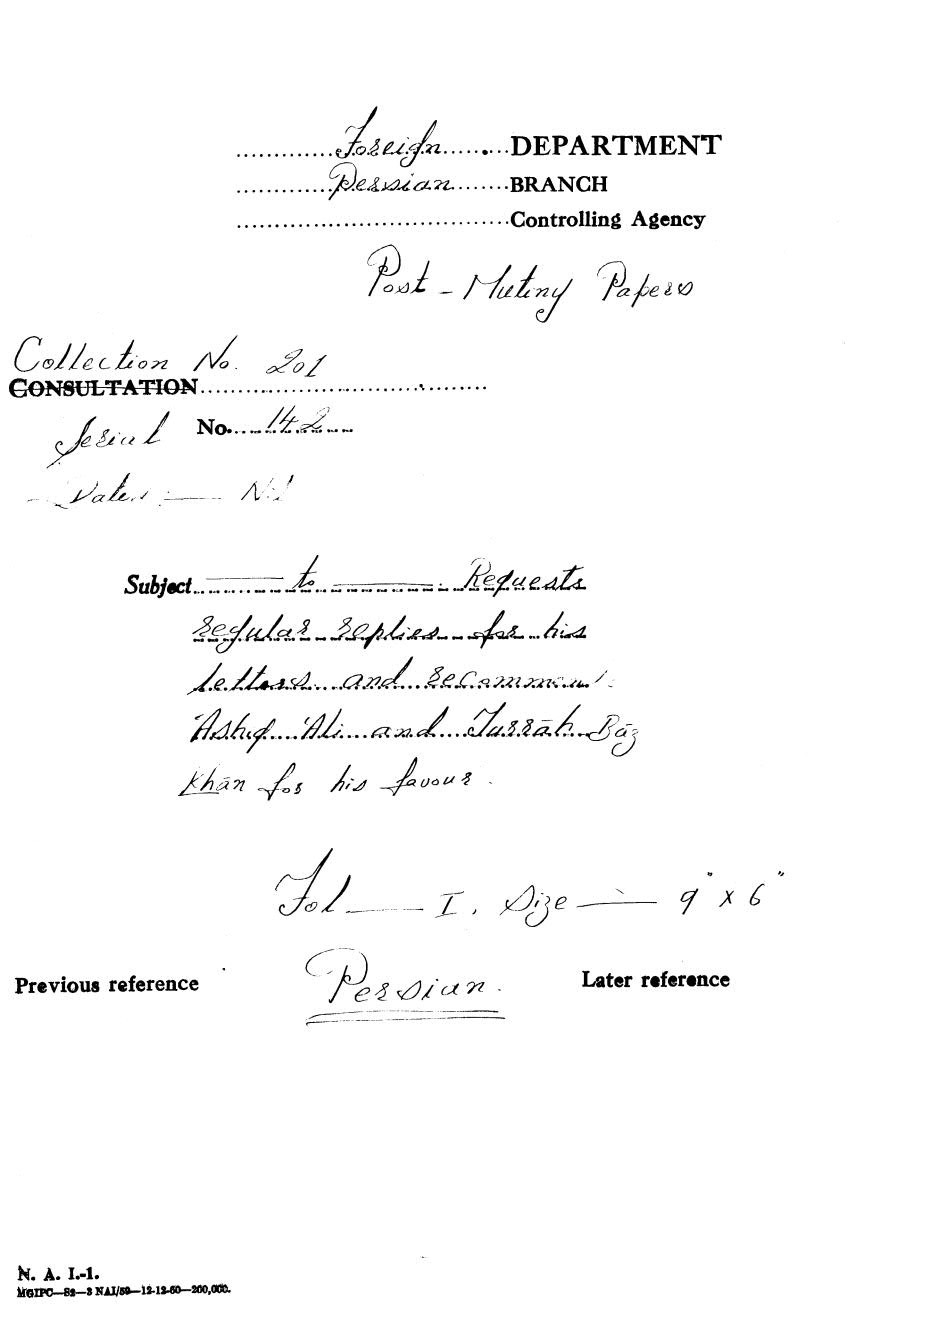 Foreign DEPARTMENT
Persian BRANCH
Controlling Agency
Post-Mutiny Papers
Collection No. 201
CONSULTATION
Serial No. 142
Date :— Nil
Subject —— to —— . Requests
regular replies for his
letters and recommend
'Ashiq 'Ali and Turrāh Bāz
Khān for his favour.
Fol — I, Size — 9" x 6"
Previous reference Persian. Later reference
N. A. I.-1.
MGIPC—S2—3 NAI/59—12-12-60—200,000.